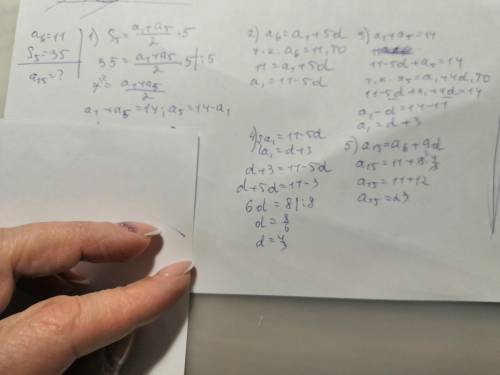 a₆=11
S₅=35
a₁₅=?
1) S₅=(a₁+a₅)/2·5
35=(a₁+a₅)/2·5|:5
7=(a₁+a₅)/2
a₁+a₅=14; a₅=14-a₁
2) a₆=a₁+5d
т.к. a₆=11, то
11=a₁+5d
a₁=11-5d
11-5d+a₅=14
т.к. a₅=a₁+4d, то
11-5d+a₁+4d=14
a₁-d=14-11
a₁=d+3
4) {a₁=11-5d
a₁=d+3
d+3=11-5d
d+5d=11-3
6d=8
d=8/6
d=4/3
5) a₁₅=a₆+9d
a₁₅=11+9·4/3
a₁₅=11+12
a₁₅=23